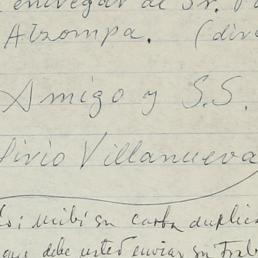 entregar al Sr.
Atzompa. (dire
Amigo y S.S.
Livio Villanueva
recibí su carta duplica
que debe usted enviar su Trab